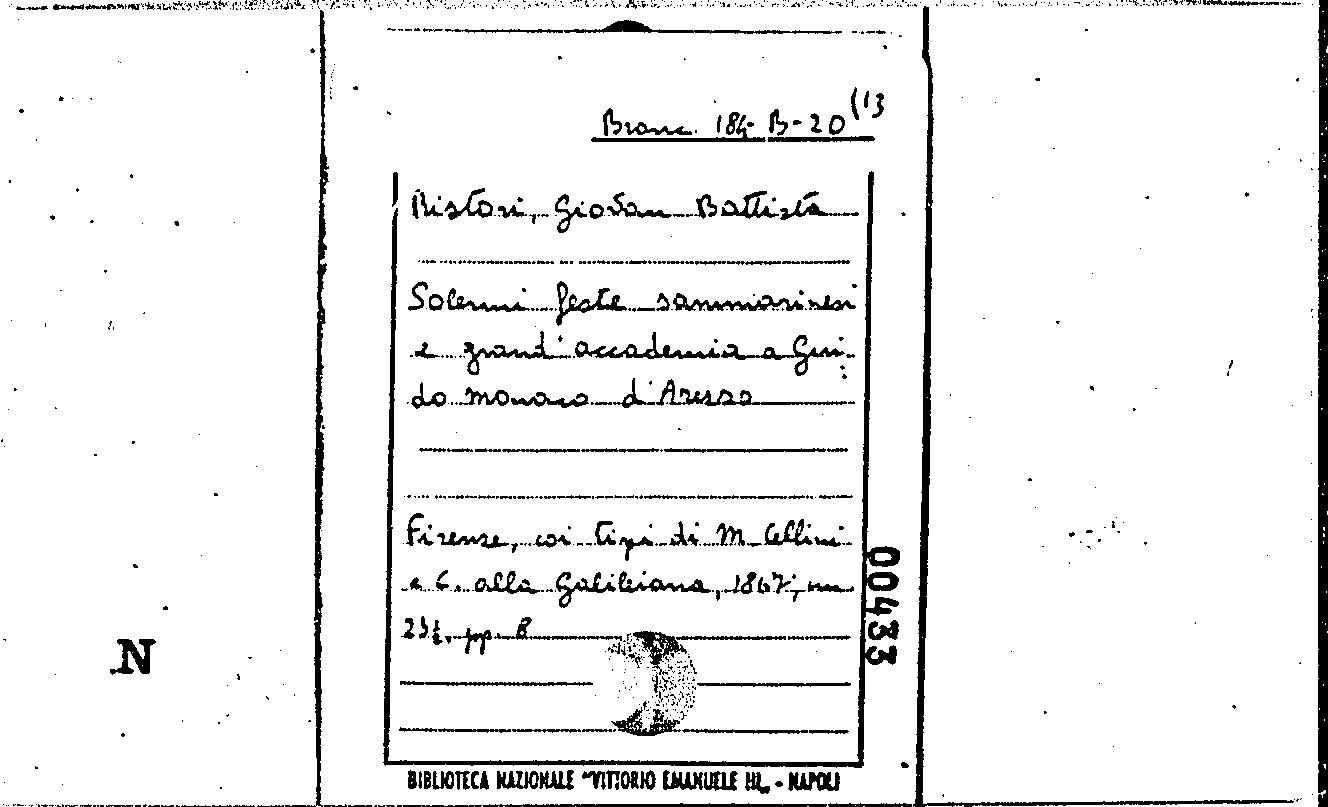 Branc. 184 B-20 (13
Ristori, Giovan Battista
Solenni feste sammarinesi
e grand' accademia a Gui-
do monaco d'Arezzo
Firenze, coi tipi di M. Cellini
e C. alla Galileiana, 1867, cm
23½, pp. 8
00433
N
BIBLIOTECA NAZIONALE "VITTORIO EMANUELE III„ - NAPOLI